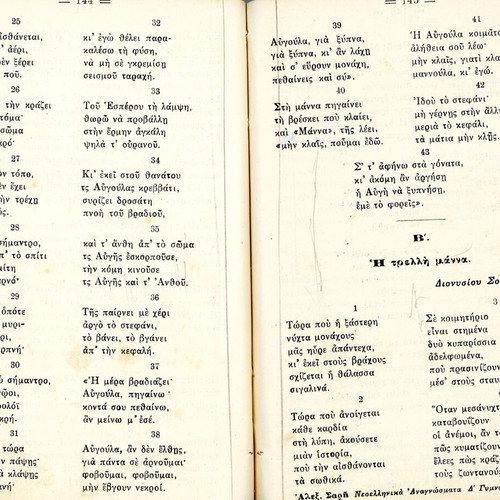 144
25
ἰσθάνεται,
ἀέρι,
δὲν ξέρει
ποῦ.
26
τὴν κράζει
στόμα·
σῶμα
27
τόπο,
ἔχει
τρέχη
28
σήμαντρο,
τὸ σπίτι
μίτη
29
ὁπότε
μυρι-
30
ὸ σήμαντρο,
31
πάψης·
κλάψης
32
κι' ἐγὼ θέλει παρα-
καλέσω τὴ φύση,
νὰ μὴ σὲ γκρεμίση
σεισμοῦ ταραχή.
33
Τοῦ Ἑσπέρου τὴ λάμψη,
θωρῶ νὰ προβάλλῃ
στὴν ἔρμη ἀγκάλη
ψηλὰ τ' οὐρανοῦ.
34
Κι' ἐκεῖ στοῦ θανάτου
τς Αὐγούλας κρεββάτι,
συρίζει δροσάτη
πνοὴ τοῦ βραδιοῦ,
35
καὶ τ' ἄνθη ἀπ' τὸ σῶμα
τς Αὐγῆς ἐσκορποῦσε,
τὴν κόμη κινοῦσε
τς Αὐγῆς καὶ τ' Ἀνθοῦ.
36
Τῆς παίρνει μὲ χέρι
ἀργὸ τὸ στεφάνι,
τὸ βάνει, τὸ βγάνει
ἀπ' τὴν κεφαλή.
37
«Ἡ μέρα βραδιάζει·
Αὐγούλα, πηγαίνω·
κοντά σου πεθαίνω,
ἂν μείνω μ' ἐσέ.
38
Αὐγούλα, ἂν δὲν ἔλθῃς,
γιὰ πάντα σὲ ἀρνοῦμαι·
φοβοῦμαι, φοβοῦμαι,
μὴν ἔβγουν νεκροί.
145
39
Αὐγούλα, γιὰ ξύπνα,
γιὰ ξύπνα, κι' ἂν λάχῃ
καὶ σ' εὕρουν μονάχη,
πεθαίνεις καὶ σύ».
40
Στὴ μάννα πηγαίνει
τὴ βρέσκει ποῦ κλαίει,
καὶ «Μάννα», τῆς λέει,
«μὴν κλαῖς, ποῦμαι ἐδῶ.
41
Ἡ Αὐγούλα κοιμᾶτ
ἀλήθεια σοῦ λέω·
μὴν κλαῖς, γιατὶ κλα
μαννούλα, κι' ἐγώ.
42
Ἰδοὺ τὸ στεφάνι·
μὴ γέρνῃς στὴν ἄλλ
μεριὰ τὸ κεφάλι,
τὰ μάτια μὴν κλῇς.
43
Σ' τ' ἀφήνω στὰ γόνατα,
κι' ἀκόμη ἂν ἀργήσῃ
ἡ Αὐγὴ νὰ ξυπνήσῃ,
ἐμὲ τὸ φορεῖς».
Β΄.
Ἡ τρελλὴ μάννα.
Διονυσίου Σο
1
Τώρα ποὺ ἡ ξάστερη
νύχτα μονάχους
μᾶς ηὗρε ἀπάντεχα,
κι' ἐκεῖ στοὺς βράχους
σχίζεται ἡ θάλασσα
σιγαλινά.
2
Τώρα ποὺ ἀνοίγεται
κάθε καρδία
στὴ λύπη, ἀκούσετε
μιὰν ἱστορία,
ποὺ τὴν αἰσθάνονται
τὰ σωθικά.
3
Σὲ κοιμητήριο
εἶναι στημένα
δυὸ κυπαρίσσια
ἀδελφωμένα,
ποὺ πρασινίζουν
μέσ' στοὺς σταυ
Ὅταν μεσάνυχτ
καταβουΐζουν
οἱ ἀνέμοι, ἂν τ
ἔλεες κράζ
τοὺς ζωντανού
Ἀλεξ. Σαρῆ Νεοελληνικὰ Ἀναγνώσματα Δ΄ Γυμν